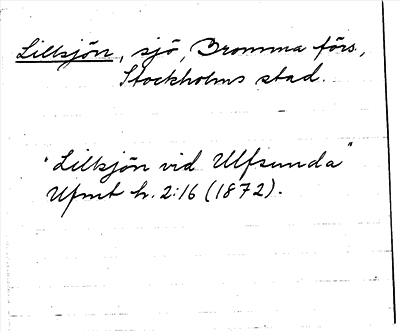 Lillsjön, sjö, Bromma förs.,
Stockholms stad.
"Lillsjön vid Ulfsunda"
Ufmt h. 2:16 (1872).